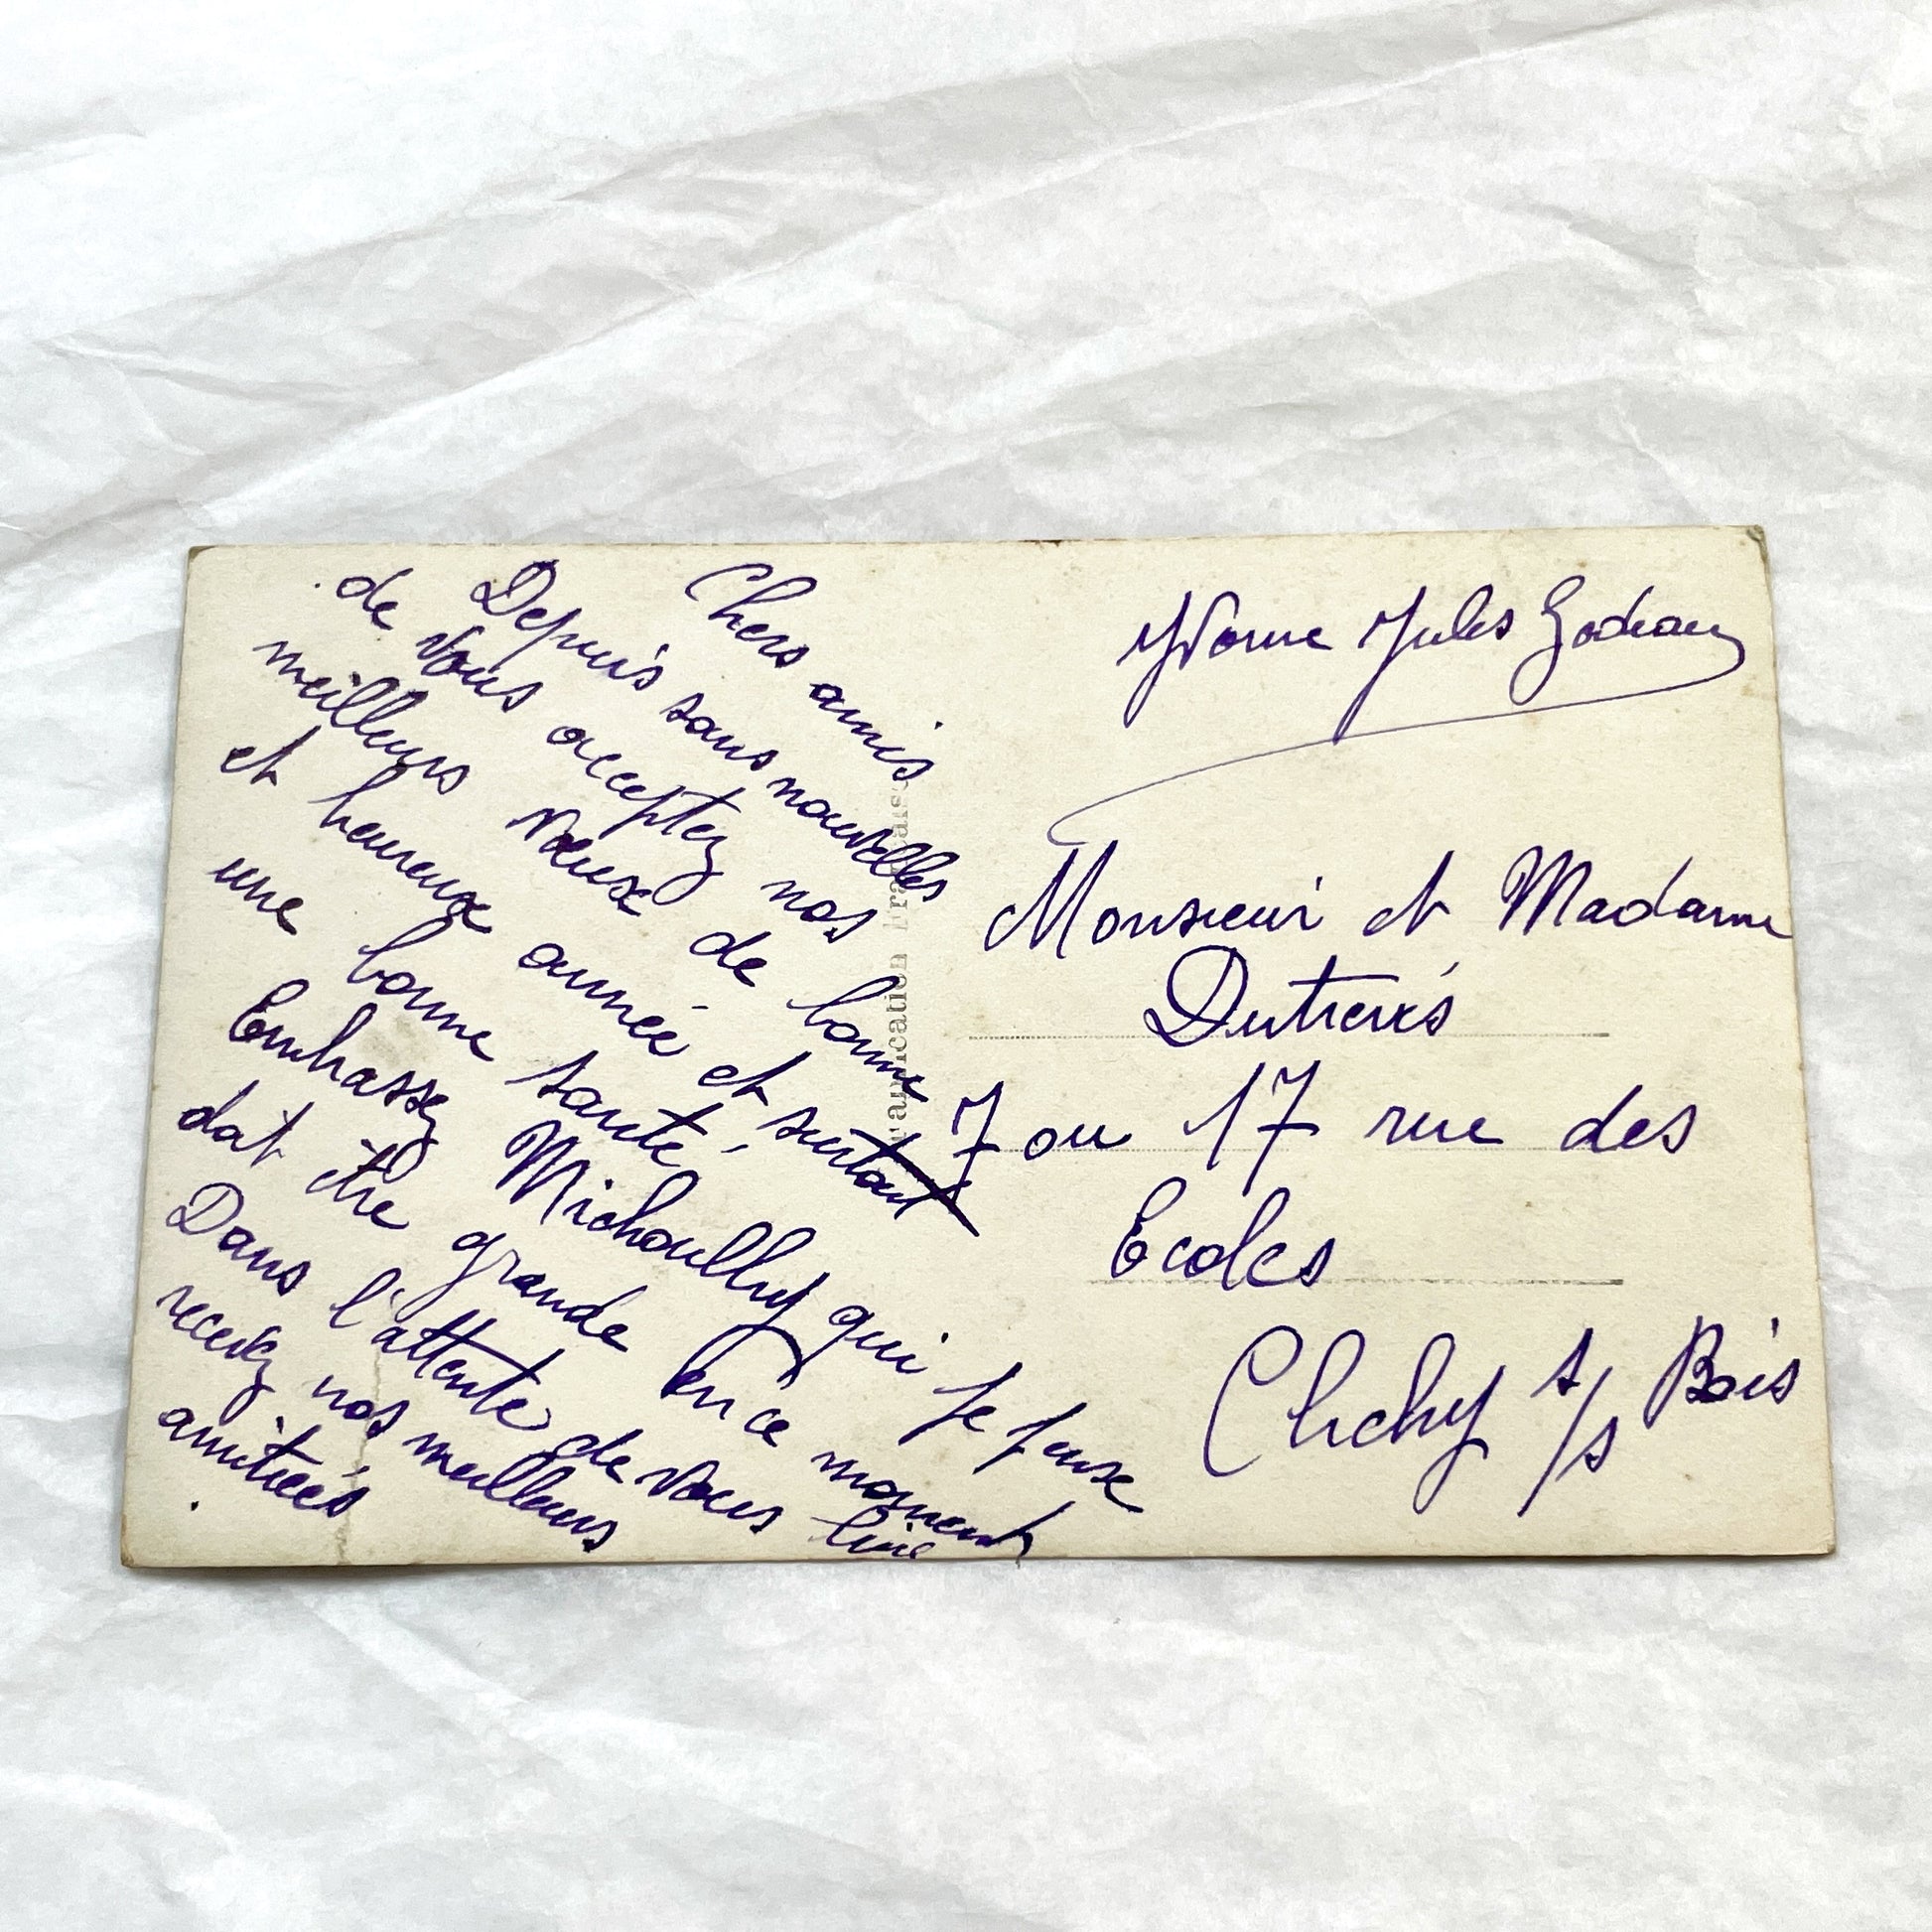 Chers amis
Depuis sans nouvelles
de vous acceptez nos
meilleurs vœux de bonne
et heureuse année et surtout
une bonne santé,
Embrassez Michoully qui je pense
doit être grande en ce moment
Dans l'attente de vous lire
recevez nos meilleurs
amitiés
Fabrication Française
Yvonne Jules Godeau
Monsieur et Madame
7 ou 17 rue des
Ecoles
Clichy s/s Bois